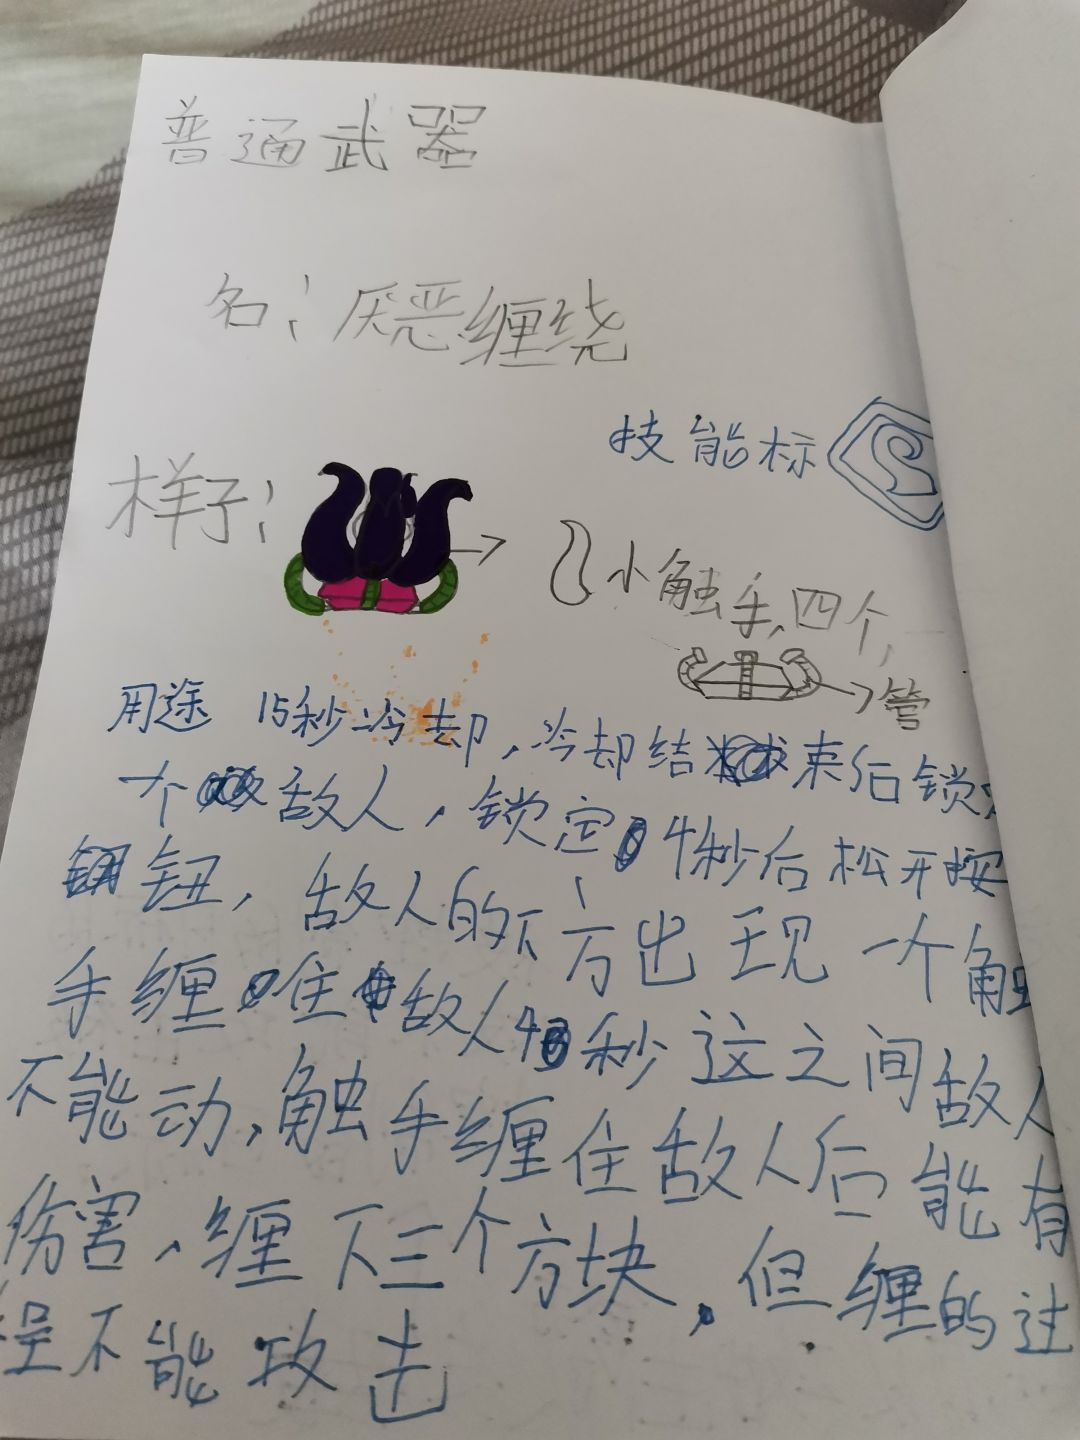 普通武器
名：厌恶缠绕
技能标
样子：
小触手，四个，
管
用途 15秒冷却，冷却结束后锁
个敌人，锁定4秒后松开按
钮，敌人的下方出现一个触
手缠住敌人4秒这之间敌人
不能动，触手缠住敌人后能有
伤害，缠下三个方块，但缠的过
程不能攻击